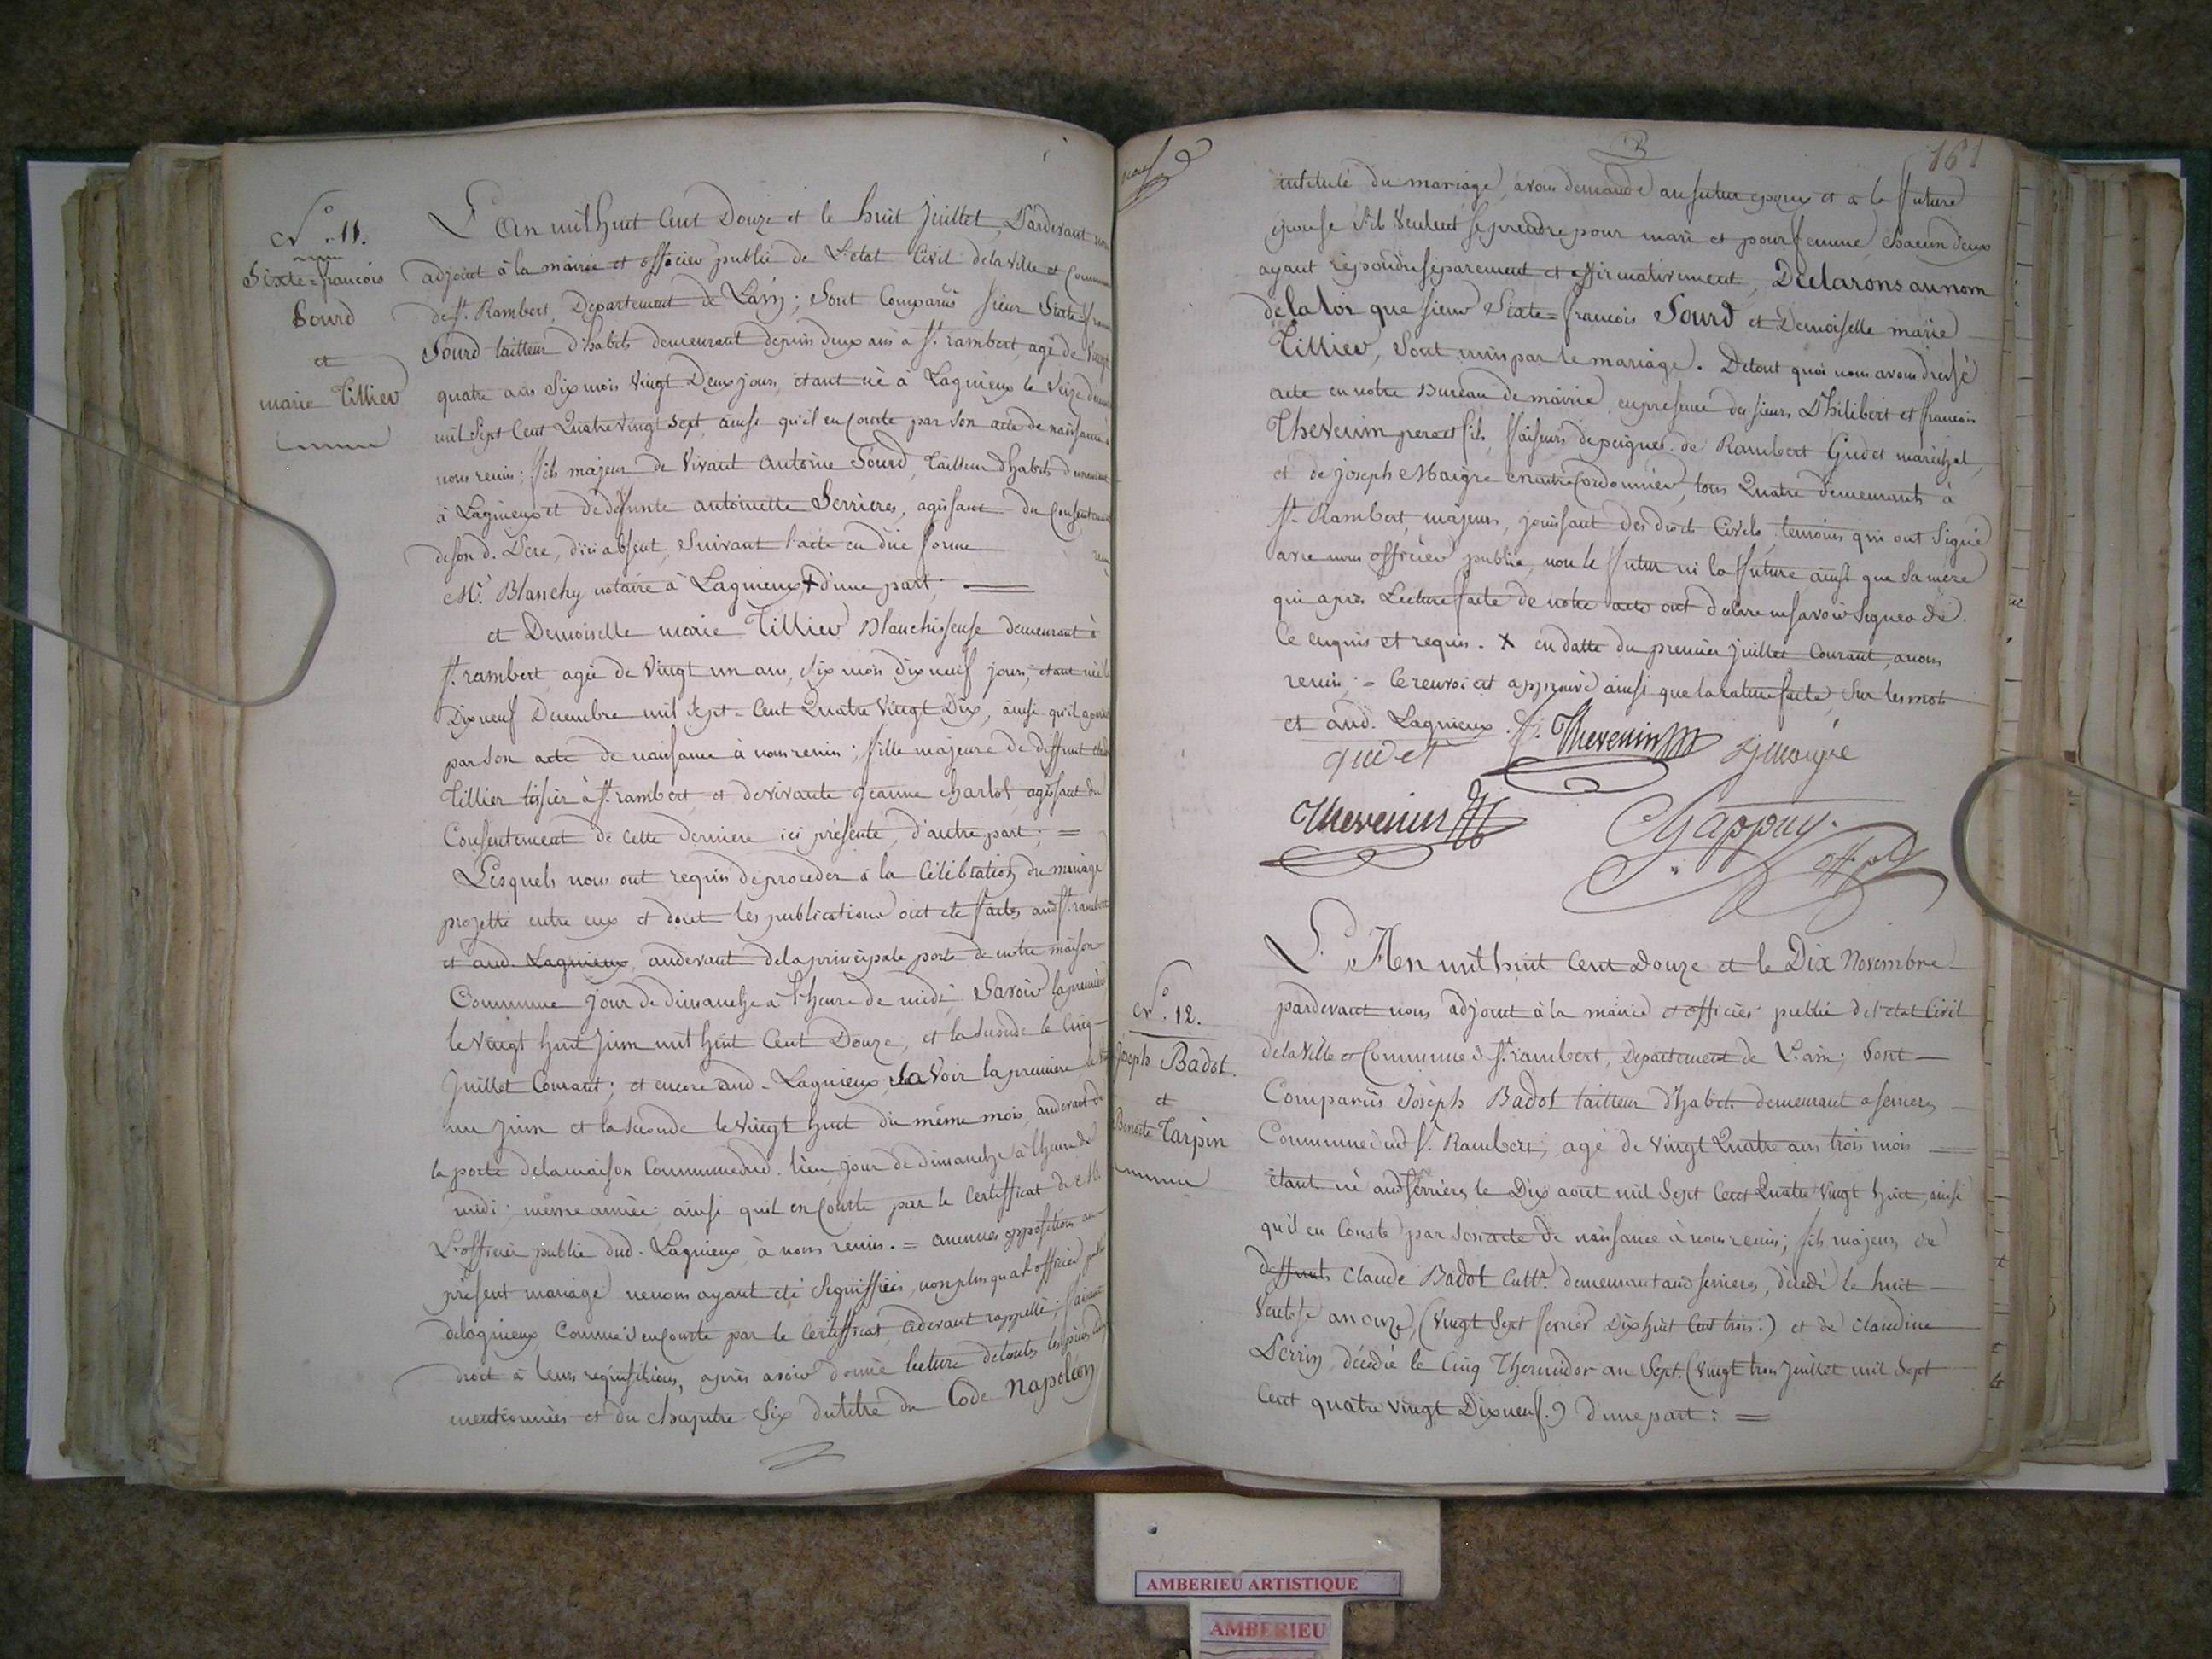 N.° 11.
Sixte=françois
Sourd
et
marie Tillier
L'An mil huit Cent Douze et le huit Juillet, Pardevant nous
adjoint à la mairie et officier public de L'etat Civil de la Ville et Commune
de St. Rambert, Departement de L'ain; Sont Comparûs Sieur Sixte=françois
Sourd tailleur d'habits demeurant depuis deux ans à St. rambert, agé de Vingt
quatre ans Six mois Vingt Deux jours, étant né à Lagnieux le Seize decembre
mil Sept Cent Quatre Vingt Sept, ainsi qu'il en Conste par Son acte de naissance à
nous remis; fils majeur de Vivant Antoine Sourd, tailleur d'habits demeurant
à Lagnieux et de défunte antoinette Serrieres, agissant du Consentement
de son d. Pere, d'ici absent, Suivant l'acte en düe forme reçu
Me. Blanchy notaire à Lagnieux + d'une part;
et Demoiselle marie Tillier Blanchisseuse demeurant à
St. rambert, agée de Vingt un ans, Six mois dix neuf jours, étant née le
Dix neuf Decembre mil Sept=Cent Quatre Vingt Dix, ainsi qu'il
par Son acte de naissance à nous remis; fille majeure de deffunt
Tillier tissier à St. rambert, et de vivante Jeanne charlot, agissant du
Consentement de cette derniere ici présente, d'autre part; =
Lesquels nous ont requis de proceder à la Célébration du mariage
projetté entre eux et dont les publications ont été faites aud St. rambert
et aud. Lagnieux, audevant de la principale porte de notre maison
Commune Jour de dimanche à l'heure de midi, Savoir la premiere
le Vingt huit Juin mil huit Cent Douze, et la Seconde le Cinq
Juillet Courant; et encore aud. Lagnieux, Savoir la premiere le Vingt
un Juin et la Seconde le Vingt huit du même mois, audevant de
la porte de la maison Commune dud. lieu, jour de dimanche à l'heure de
midi; même année: ainsi qu'il en Conste par le Certifficat de M.
L'officier public dud. Lagnieux à nous remis. = aucunes oppositions au
présent mariage ne nous ayant été Signiffiées, non plus qu'à l'officier public
de lagnieux, Comme il en Conste par le Certifficat, cidevant rappellé; faisant
droit à leurs réquisitions, après avoir donné lecture de toutes les pièces
mentionnées et du chapitre Six du titre du Code Napoléon
161
intitulé du mariage, avons demandé au futur epoux et à la future
épouse S'ils Veulent se prendre pour mari et pour femme, chacun d'eux
ayant répondu séparement et affirmativement, Déclarons au nom
de la loi que Sieur Sixte=françois Sourd et Demoiselle marie
Tillier, Sont unis par le mariage. De tout quoi nous avons dressé
acte en notre Bureau de mairie, en présence des sieurs Philibert et francois
Thevenin pere et fils, faiseurs de peignes, de Rambert Gudet maréchal,
et de joseph Maigre Cordonnier, tous Quatre demeurants à
St. Rambert, majeurs, jouissant des droits Civils, temoins qui ont Signé
avec nous officier public, non le futur ni la future ainsi que Sa mère
qui après Lecture faite de notre acte ont déclaré ne savoir Signer de
ce enquis et requis. X en datte du premier juillet Courant, à nous
remis; = le renvoi est approuvé ainsi que la rature faite, Sur les mots
et aud. Lagnieux.
f. Thevenin
gudet
j maigre
Thevenin
Chappuy.
off. p.
N.° 12.
Joseph Badot.
et
Benoite Tarpin
L'An mil huit Cent Douze et le Dix Novembre
pardevant nous adjoint à la mairie et officier public de l'etat Civil
de la Ville et Commune de St. rambert, Departement de L'ain; Sont
Comparûs Joseph Badot tailleur d'habits demeurant à serrieres
Commune dud St. Rambert, agé de Vingt Quatre ans trois mois
étant né aud serrieres le Dix aout mil Sept Cent Quatre Vingt huit, ainsi
qu'il en Conste par son acte de naissance à nous remis; fils majeur de
deffunts Claude Badot Cultr. demeurant aud serrieres, décédé le huit
Ventose an onze, (Vingt Sept fevrier Dix huit Cent trois.) et de claudine
Perrin, décédée le Cinq Thermidor an Sept. (Vingt trois Juillet mil Sept
Cent quatre vingt Dix neuf.) d'une part: =
AMBERIEU ARTISTIQUE
AMBERIEU